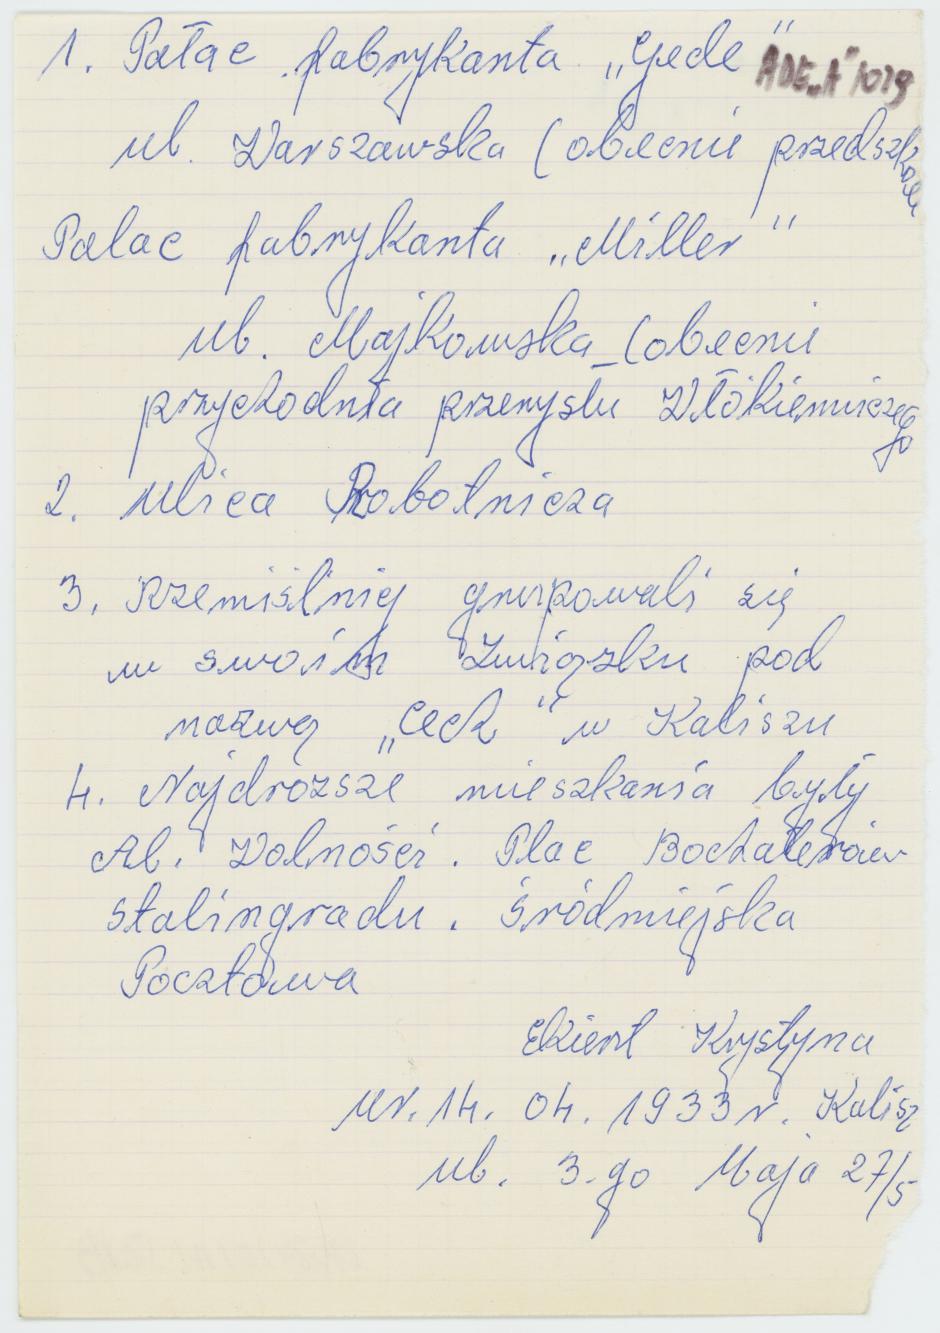 1. Pałac fabrykanta „Gede"
ADE„A" 1029
ul. Warszawska (obecnie przedszkole
Pałac fabrykanta „Miller"
ul. Majkowska (obecnie
przychodnia przemysłu Włókienniczego
2. Ulica Robotnicza
3. Rzemiślnicy grupowali się
w swoim Związku pod
nazwą „Cech" w Kaliszu
4. Najdrozsze mieszkania były
Al. Wolności. Plac Bochaterów
Stalingradu. Śródmiejska
Pocztowa
Krystyna
ur. 14. 04. 1933 r. Kalisz
ul. 3-go Maja 27/5